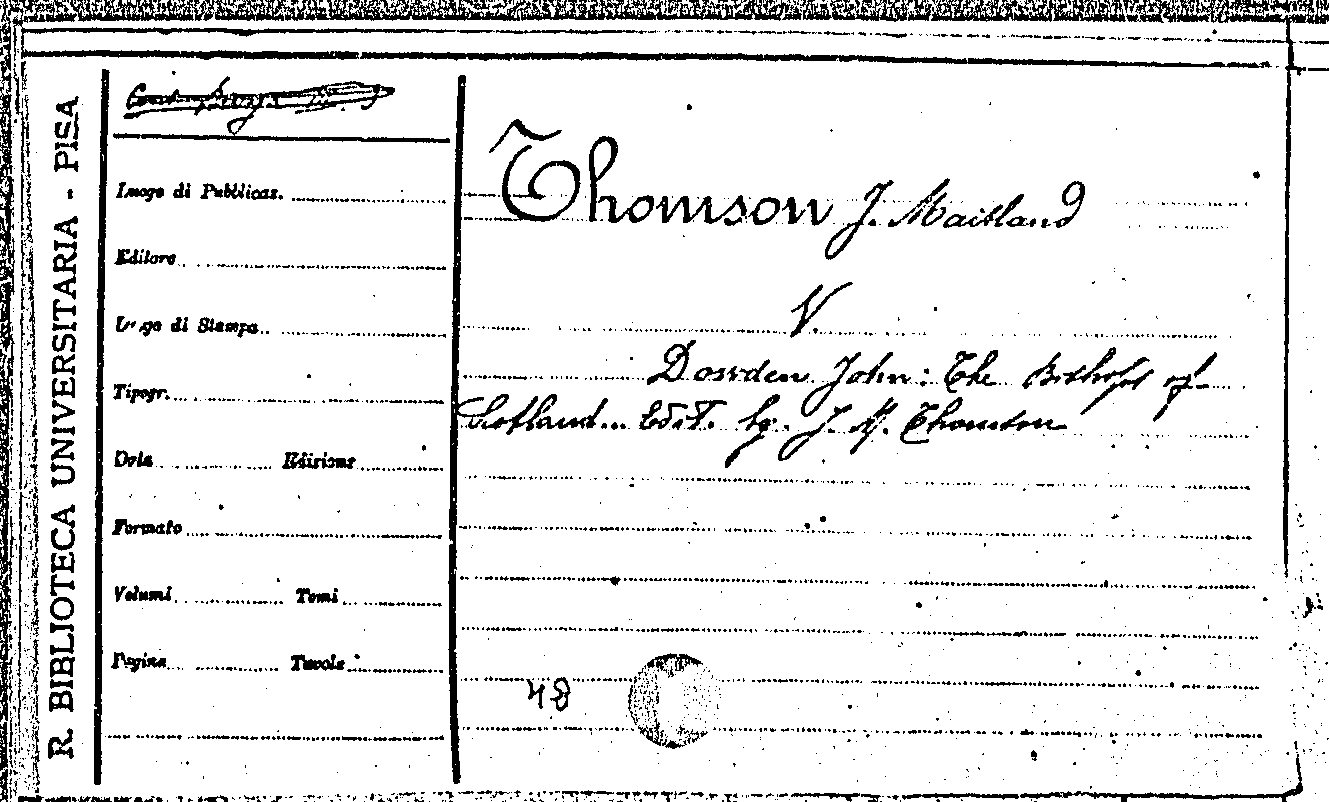 R. BIBLIOTECA UNIVERSITARIA - PISA
Luogo di Pubblicaz.
Editore
Luogo di Stampa
Tipogr.
Data Edizione
Formato
Volumi Tomi
Pagine Tavole
Thomson J. Maitland
V.
Dowden John: The Bishops of
Scotland... Edit. by J. M. Thomson
48